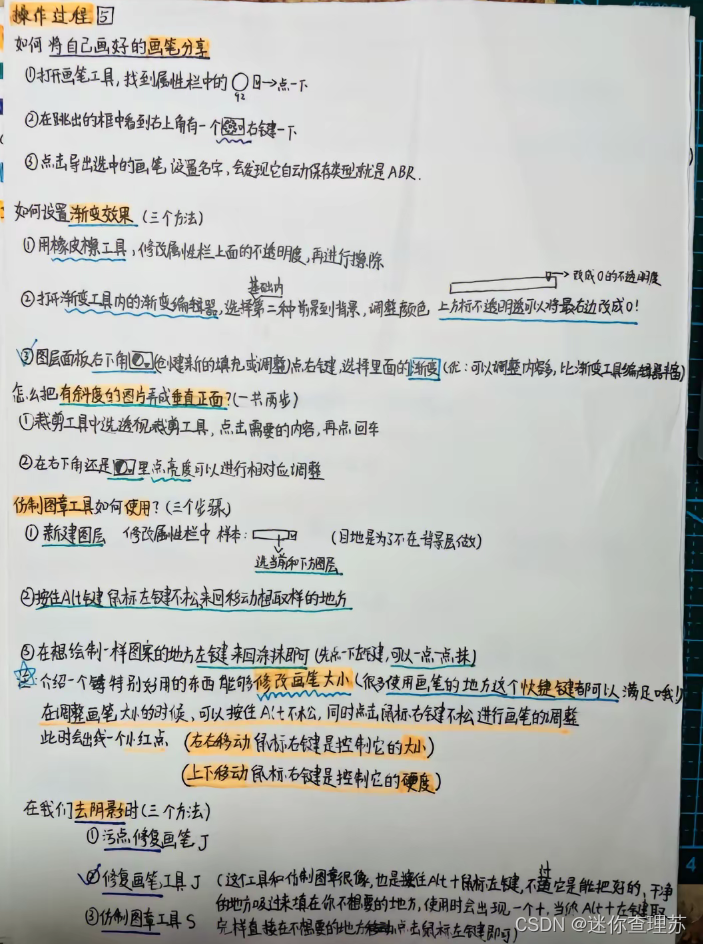 操作过程 5
如何将自己画好的画笔分享
①打开画笔工具，找到属性栏中的 →点一下
92
②在跳出的框中看到右上角有一个 右键一下
③点击导出选中的画笔，设置名字，会发现它自动保存类型就是ABR.
如何设置渐变效果（三个方法）
①用橡皮擦工具，修改属性栏上面的不透明度，再进行擦除
→改成0的不透明度
基础内
②打开渐变工具内的渐变编辑器，选择第二种前景到背景，调整颜色，上方标不透明度可以将最右边改成0!
③图层面板右下角 (创建新的填充或调整)点右键，选择里面的渐变（优：可以调整内容多，比渐变工具编辑器丰富）
怎么把有斜度的图片弄成垂直正面?(一共两步)
①裁剪工具中选透视裁剪工具，点击需要的内容，再点回车
②在右下角还是 里点亮度可以进行相对应调整
仿制图章工具如何使用?(三个步骤)
①新建图层 修改属性栏中 样本: (目地是为了不在背景层做)
选当前和下方图层
②按住Alt键 鼠标左键不松，来回移动想取样的地方
③在想绘制一样图案的地方左键来回涂抹即可(先点一下左键，可以一点一点抹)
介绍一个特别好用的东西能够修改画笔大小(很多使用画笔的地方这个快捷键都可以满足哦!)
在调整画笔大小的时候、可以按住Alt不松，同时点击鼠标右键不松进行画笔的调整
此时会出线一个小红点 (左右移动鼠标右键是控制它的大小)
(上下移动鼠标右键是控制它的硬度)
在我们去阴影时(三个方法)
①污点修复画笔J
②修复画笔工具J (这个工具和仿制图章很像，也是按住Alt+鼠标左键，不过它是能把好的，干净
的地方吸过来填在你不想要的地方，使用时会出现一个+，当你Alt+左键取
③仿制图章工具S 完样直接在不想要的地方点击鼠标左键即可)
CSDN @迷你查理苏
4